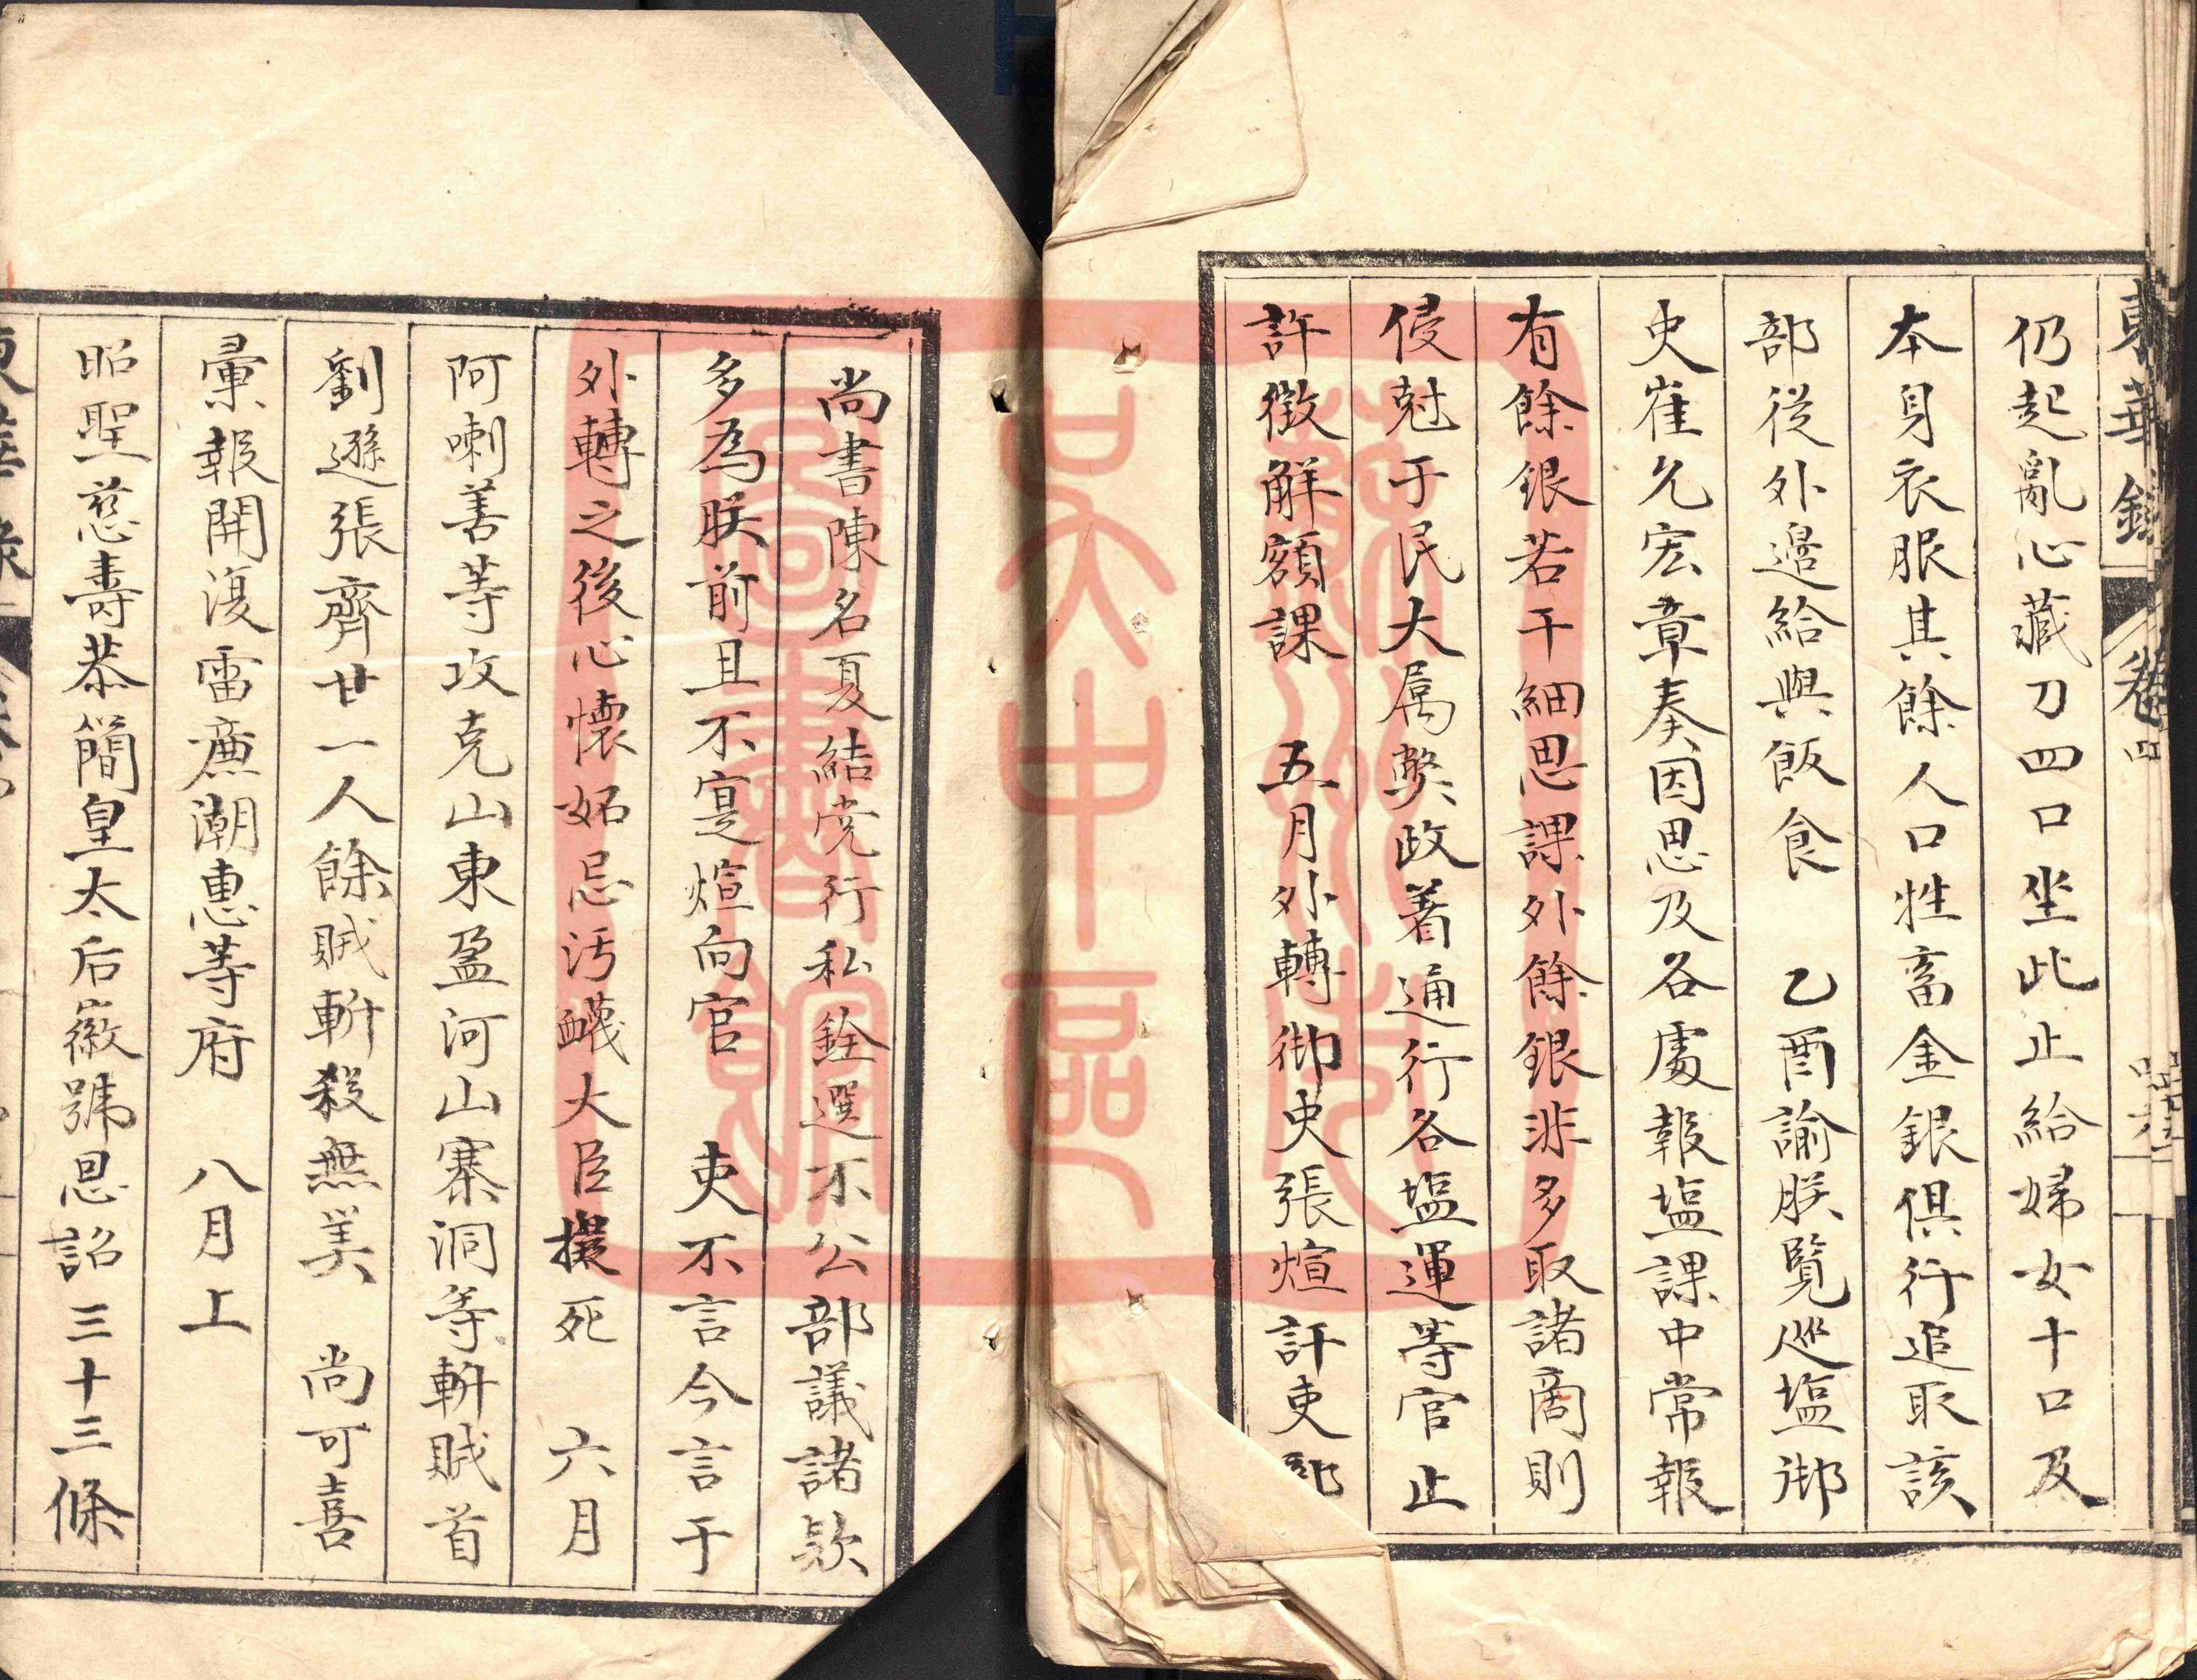 東華錄 卷四
仍起亂心藏刀四口坐此止給婦女十口及
本身衣服其餘人口牲畜金銀俱行追取該
部從外邊給與飯食 乙酉諭朕覽巡塩御
史崔允宏章奏因思及各處報塩課中常報
有餘銀若干細思課外餘銀非多取諸商則
侵尅于民大属獘政着通行各塩運等官止
許徵解額課 五月外轉御史張煊訐吏部
尚書陳名夏結党行私銓選不公部議諸欵
多為朕前且不寔煊向官 吏不言今言于
外轉之後心懷妬忌汚衊大臣擬死 六月
阿喇善等攻克山東盈河山寨洞等斬賊首
劉遜張齊廿一人餘賊斬殺無美 尚可喜
彙報開復雷㢘潮惠等府 八月上
昭聖慈壽恭簡皇太后徽號恩詔三十三條
蘇州市
吳中區
圖書館